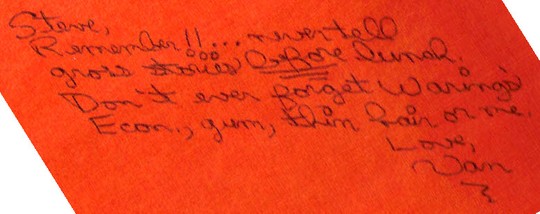 Steve,
Remember!!... never tell
gross stories before lunch.
Don't ever forget Waring's
Econ., gum, thin hair or me.
Love,
Van